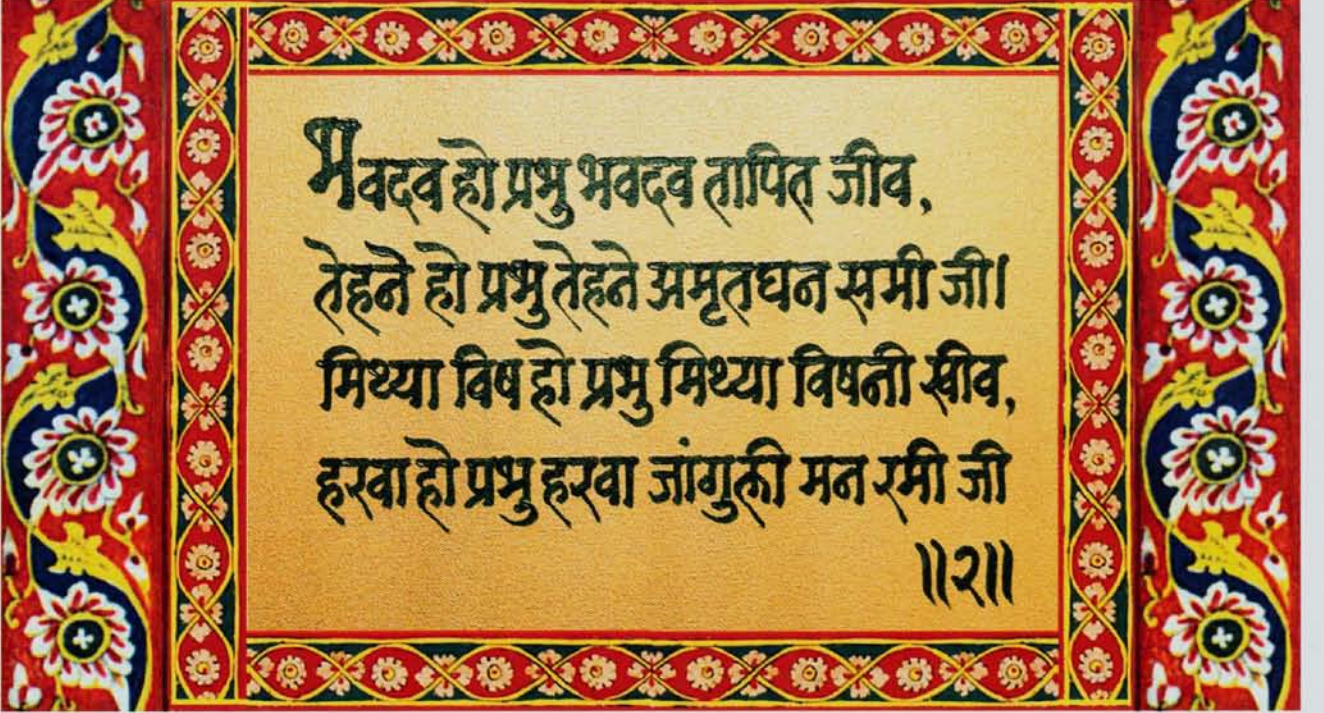 भवदव हो प्रभु भवदव तापित जीव,
तेहने हो प्रभु तेहने अमृतघन समी जी।
मिथ्या विष हो प्रभु मिथ्या विषनी खीव,
हरवा हो प्रभु हरवा जांगुली मन रमी जी
॥२॥